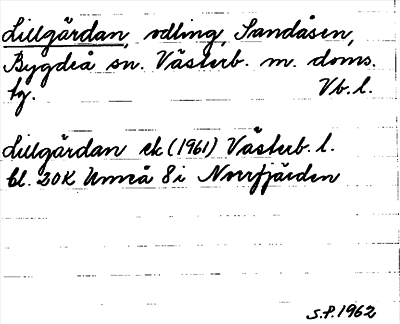 Lillgärdan, odling, Sandåsen,
Bygdeå sn. Västerb. m. doms.
tg. Vb. l.
Lillgärdan ek (1961) Västerb. l.
bl. 20K Umeå 8 i Norrfjärden
S.P. 1962